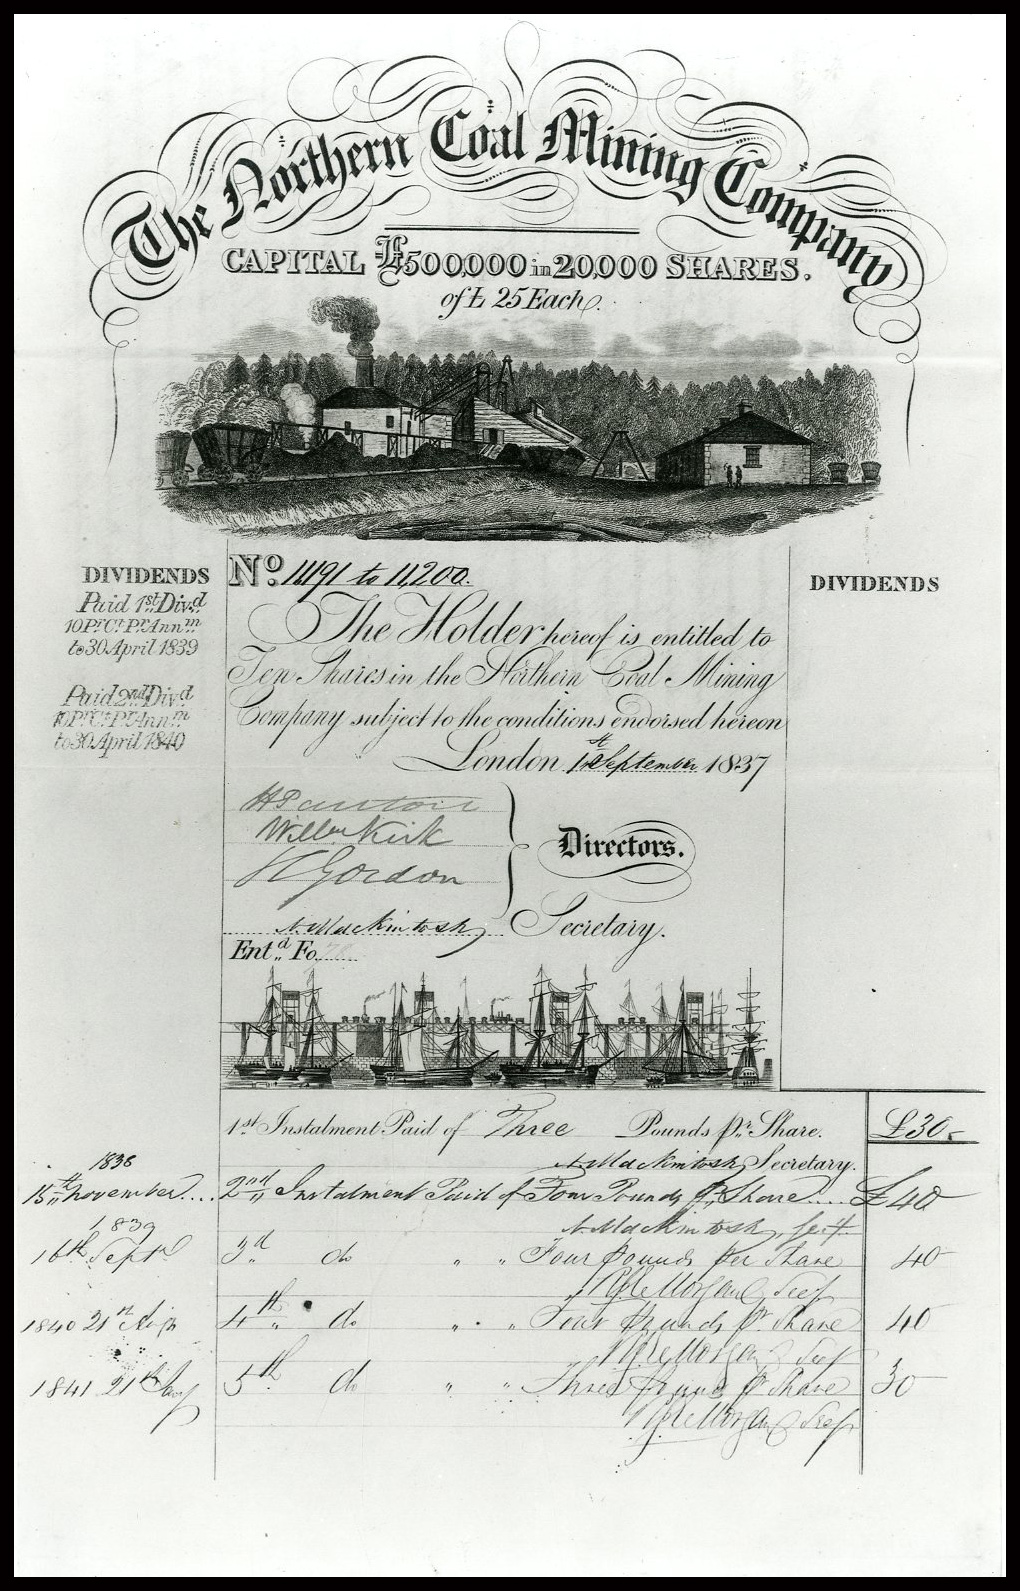 The Northern Coal Mining Company
CAPITAL £500,000 in 20,000 SHARES.
of £ 25 Each.
DIVIDENDS
Paid 1st Divd
10 Pr Ct Pr Annm
to 30 April 1839
Paid 2nd Divd
10 Pr Ct Pr Annm
to 30 April 1840
No. 11,191 to 11,200.
The Holder hereof is entitled to
Ten Shares in the Northern Coal Mining
Company subject to the conditions endorsed hereon
London 1st September 1837
Willm Kirk
Gordon
Directors.
A. MacKintosh Secretary.
Entd Fo.
DIVIDENDS
1st Instalment Paid of Three Pounds pr Share. £30
A. MacKintosh Secretary.
1838
15th November 2nd Instalment Paid of Four Pounds pr Share £40
A. MacKintosh, Secy
1839
16th Sept 3d do " " Four pounds per share 40
Morgan Secy
1840 21st 4th do " " Four pounds pr share 40
Morgan Secy
1841 21st 5th do " " Three pounds pr share 30
Morgan Secy